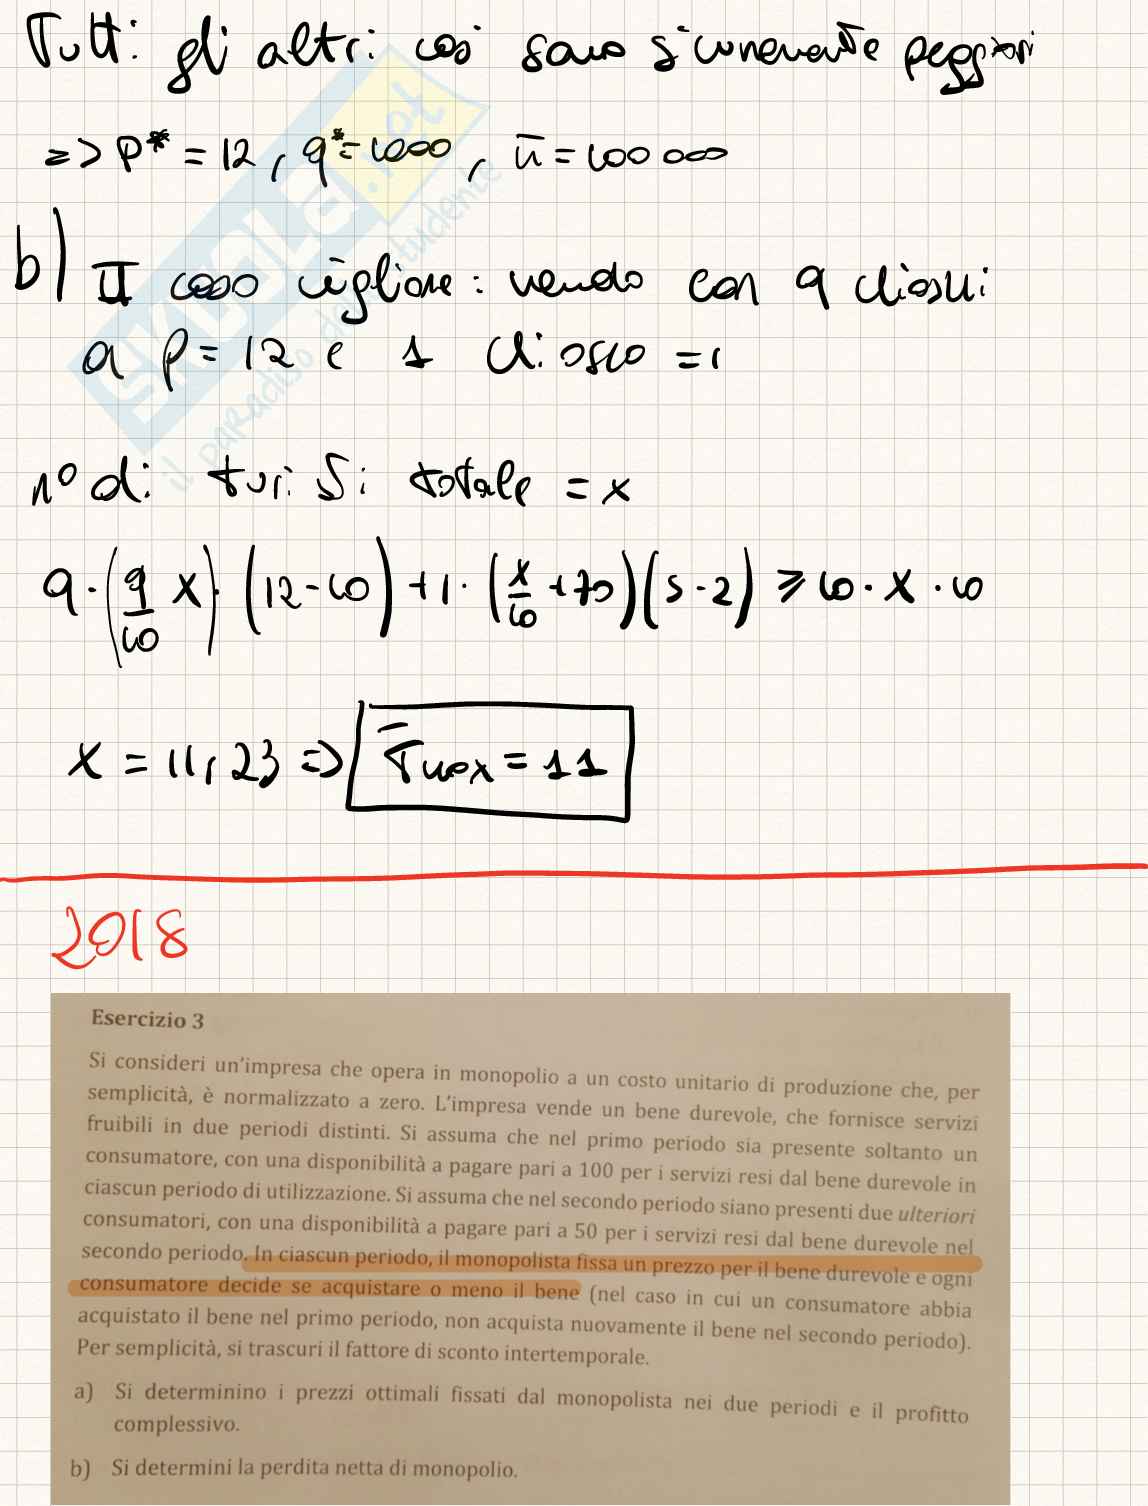 Tutti gli altri casi sono sicuramente peggiori
=> p* = 12, q* = 1000, π = 100 000
b) II caso migliore: vendo con 9 chioschi
a p = 12 e 1 chiosco =1
n° di turisti totale = x
9 · (9/10 x) · (12-10) + 1 · (x/10 + 70)(5-2) ≥ 10 · x · 10
x = 11,23 => Tmax = 11
2018
Esercizio 3
Si consideri un'impresa che opera in monopolio a un costo unitario di produzione che, per
semplicità, è normalizzato a zero. L'impresa vende un bene durevole, che fornisce servizi
fruibili in due periodi distinti. Si assuma che nel primo periodo sia presente soltanto un
consumatore, con una disponibilità a pagare pari a 100 per i servizi resi dal bene durevole in
ciascun periodo di utilizzazione. Si assuma che nel secondo periodo siano presenti due ulteriori
consumatori, con una disponibilità a pagare pari a 50 per i servizi resi dal bene durevole nel
secondo periodo. In ciascun periodo, il monopolista fissa un prezzo per il bene durevole e ogni
consumatore decide se acquistare o meno il bene (nel caso in cui un consumatore abbia
acquistato il bene nel primo periodo, non acquista nuovamente il bene nel secondo periodo).
Per semplicità, si trascuri il fattore di sconto intertemporale.
a) Si determinino i prezzi ottimali fissati dal monopolista nei due periodi e il profitto
complessivo.
b) Si determini la perdita netta di monopolio.
SKUOLA.net
il paradiso dello studente